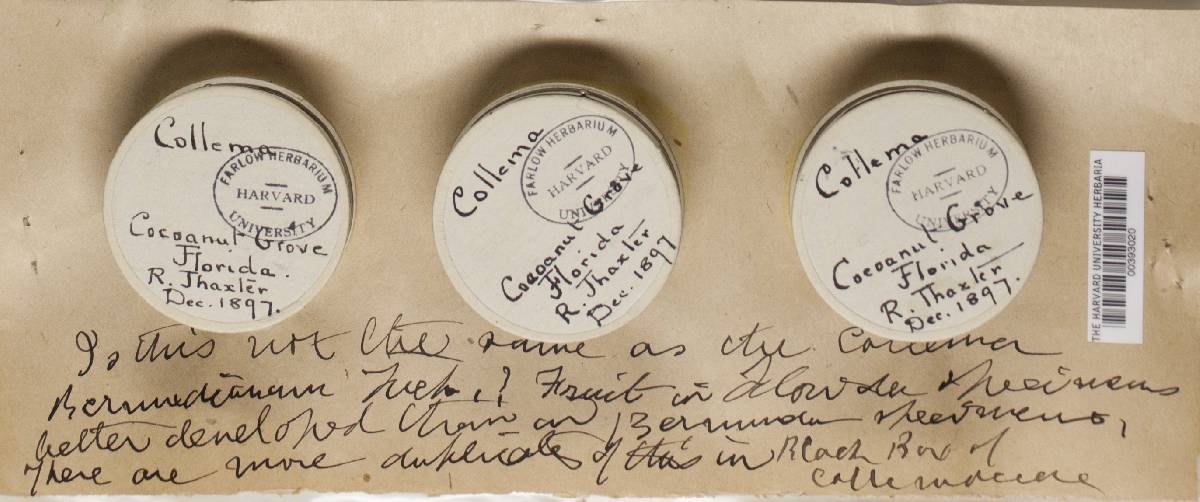 Collema
FARLOW HERBARIUM
HARVARD
UNIVERSITY
Cocoanut Grove
Florida.
R. Thaxter
Dec. 1897.
Collema
FARLOW HERBARIUM
HARVARD
UNIVERSITY
Cocoanut Grove
Florida
R. Thaxter
Dec. 1897
Collema
FARLOW HERBARIUM
HARVARD
UNIVERSITY
Cocoanut Grove
Florida
R. Thaxter
Dec. 1897.
THE HARVARD UNIVERSITY HERBARIA
00393020
Is this not the same as the Collema
Bermudianum Tuck.? Fruit in Florida specimens
better developed than in Bermudan specimens,
There are more duplicates of this in Black Box of
Collemaceae